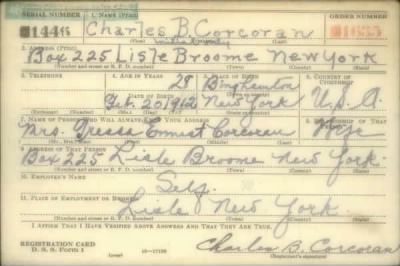 SERIAL NUMBER 1. NAME (Print) ORDER NUMBER
Charles B. Corcoran
(First) (Middle) (Last)
2. ADDRESS (Print)
Box 225 Lisle Broome New York
(Number and street or R. F. D. number) (Town) (County) (State)
3. TELEPHONE 4. AGE IN YEARS 5. PLACE OF BIRTH 6. COUNTRY OF CITIZENSHIP
28 Binghamton
DATE OF BIRTH
Feb. 20 1912 New York U.S.A.
(Exchange) (Number) (Mo.) (Day) (Yr.) (State or country)
7. NAME OF PERSON WHO WILL ALWAYS KNOW YOUR ADDRESS
Mrs. Ernest Corcoran Wife
(Mr., Mrs., Miss) (First) (Middle) (Last)
9. ADDRESS OF THAT PERSON
Box 225 Lisle Broome New York.
(Number and street or R. F. D. number) (Town) (County) (State)
10. EMPLOYER'S NAME
Self
11. PLACE OF EMPLOYMENT OR BUSINESS
Lisle New York.
(Number and street or R. F. D. number) (Town) (County) (State)
I AFFIRM THAT I HAVE VERIFIED ABOVE ANSWERS AND THAT THEY ARE TRUE.
REGISTRATION CARD
D. S. S. Form 1 Charles B. Corcoran